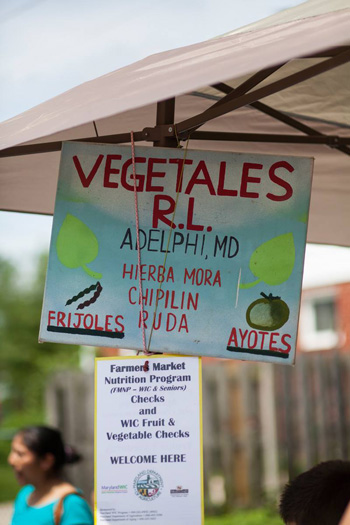 VEGETALES
R.L.
ADELPHI, MD
HIERBA MORA
CHIPILIN
RUDA
FRIJOLES
AYOTES
Farmers Market
Nutrition Program
(FMNP – WIC & Seniors)
Checks
and
WIC Fruit &
Vegetable Checks
WELCOME HERE